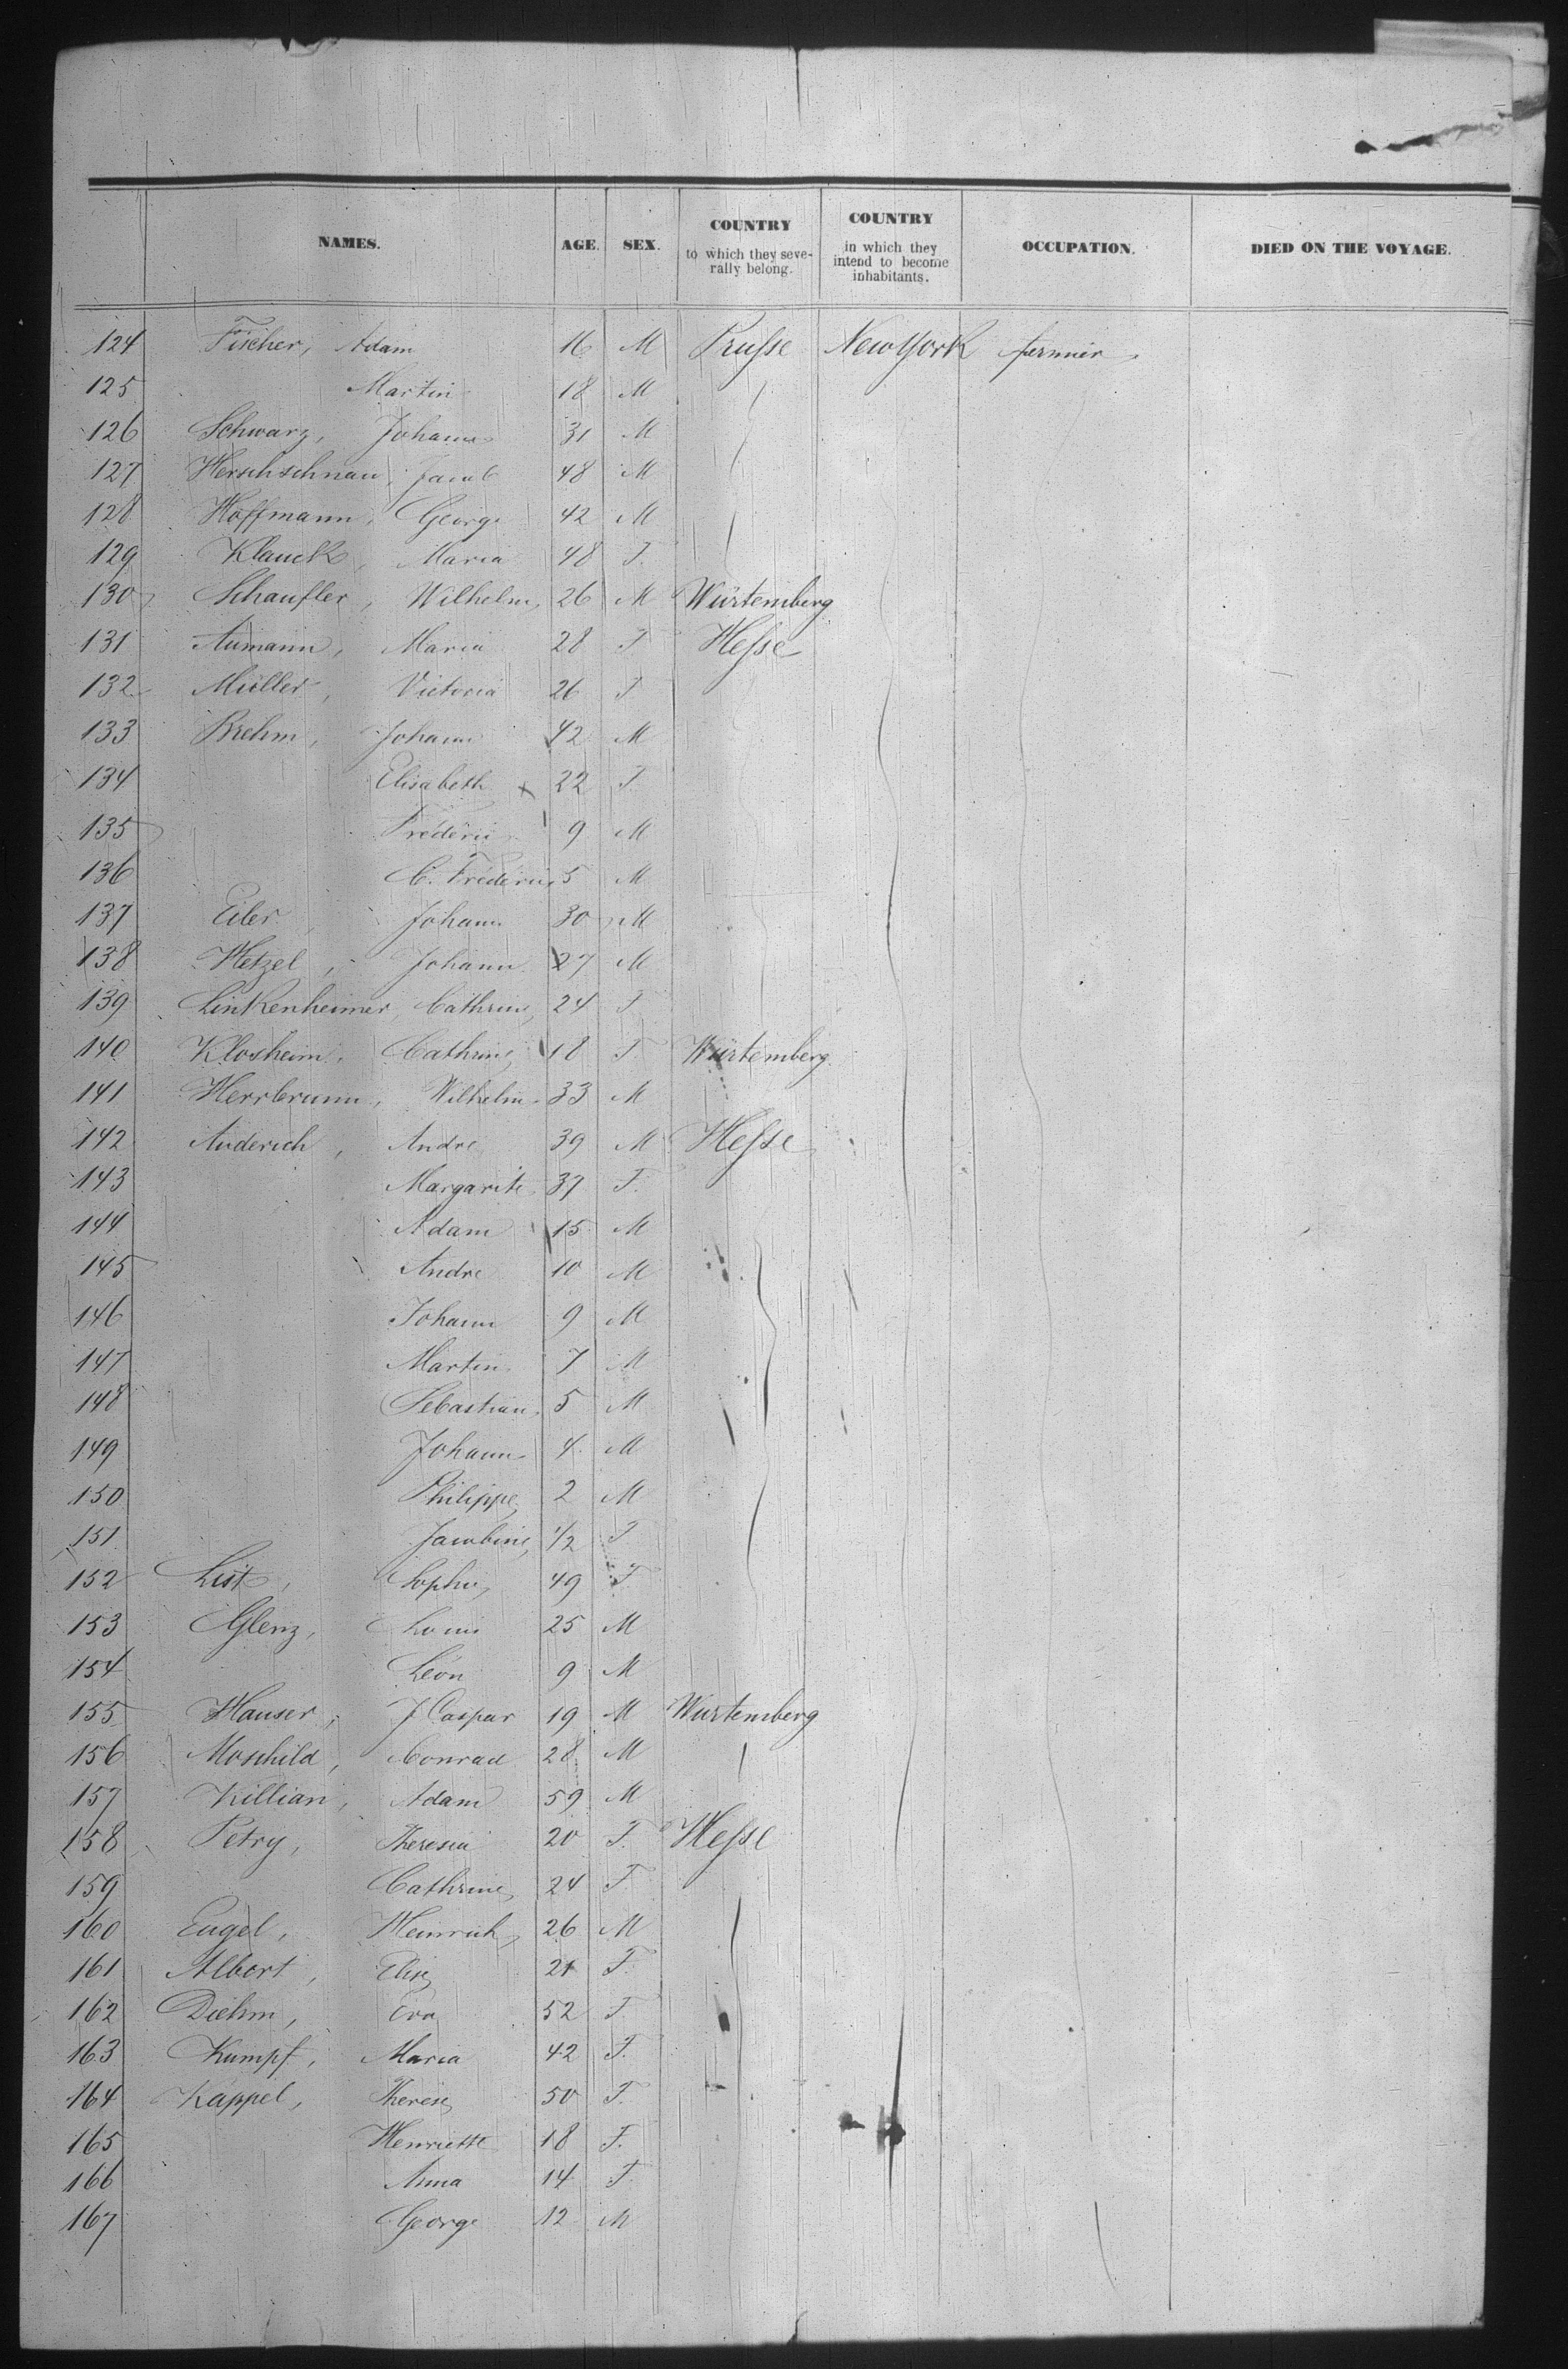 NAMES. AGE. SEX. COUNTRY to which they severally belong. COUNTRY in which they intend to become inhabitants. OCCUPATION. DIED ON THE VOYAGE.
124 Fischer, Adam 16 M Prusse New York fermier
125 Martin 18 M
126 Schwarz, Johann 31 M
127 Herschschnau, Jacob 48 M
128 Hoffmann, George 42 M
129 Klauck, Maria 48 F.
130 Schaufler, Wilhelm 26 M Würtemberg
131 Aumann, Maria 28 F Hesse
132 Müller, Victoria 26 F
133 Brehm, Johann 42 M
134 Elisabeth 22 F.
135 Fréderic 9 M
136 C. Fréderic 5 M
137 Eiler, Johann 30 M
138 Hetzel, Johann 27 M
139 Linkenheimer, Cathrine 24 F
140 Klosheim, Cathrine 18 F. Würtemberg
141 Herrbrunn, Wilhelm 33 M
142 Anderich, Andre 39 M Hesse
143 Margarite 37 F.
144 Adam 15 M
145 Andre 10 M
146 Johann 9 M
147 Martin 7 M
148 Sebastian 5 M
149 Johann 4 M
150 Philippe 2 M
151 Jacobine 1/2 F
152 List, Sophie 49 F
153 Glenz, Louis 25 M
154 Léon 9 M
155 Hauser, J Caspar 19 M Wurtemberg
156 Moschild, Conrad 28 M
157 Killian, Adam 59 M
158 Petry, Theresia 20 F. Hesse
159 Cathrine 24 F
160 Engel, Heinrich 26 M
161 Albert, Elise 21 F.
162 Diehm, Eva 52 F.
163 Kumpf, Maria 42 F.
164 Kappel, Therese 50 F.
165 Henriette 18 F.
166 Anna 14 F.
167 George 12 M